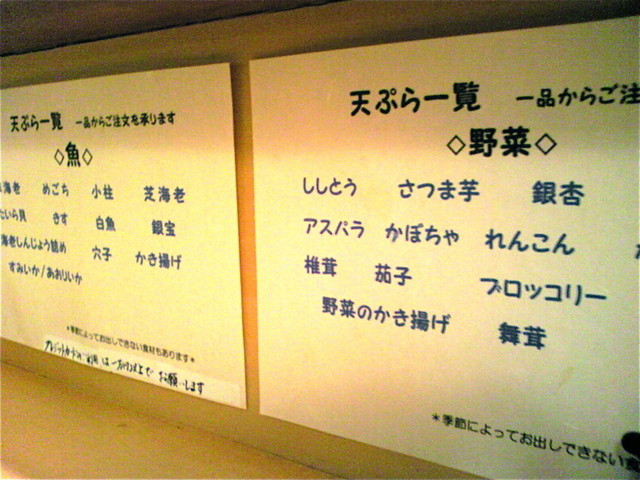 天ぷら一覧 一品からご注文を承ります
◇魚◇
海老 めごち 小柱 芝海老
たいら貝 きす 白魚 銀宝
海老しんじょう詰め 穴子 かき揚げ
すみいか/あおりいか
*季節によってお出しできない食材もあります*
お願いします
天ぷら一覧 一品からご注
◇野菜◇
ししとう さつま芋 銀杏
アスパラ かぼちゃ れんこん
椎茸 茄子 ブロッコリー
野菜のかき揚げ 舞茸
*季節によってお出しできない食